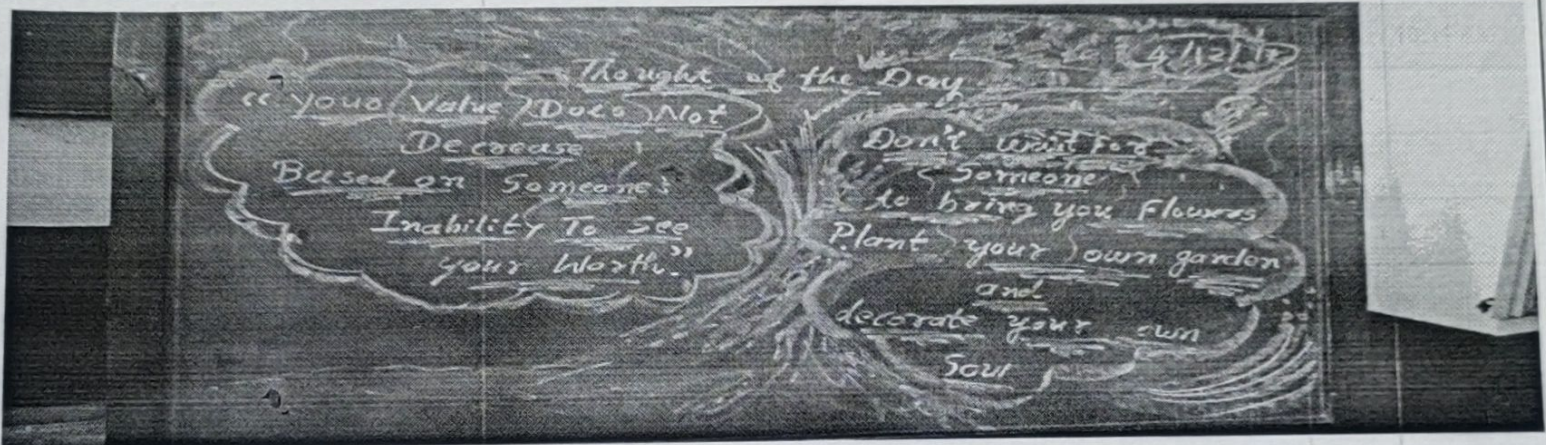 Thought of the Day
4/12/17
"Your Value Does Not
Decrease
Based on Someone's
Inability To See
your Worth."
Don't wait For
Someone
to bring you Flowers
Plant your own garden
and
decorate your own
Soul